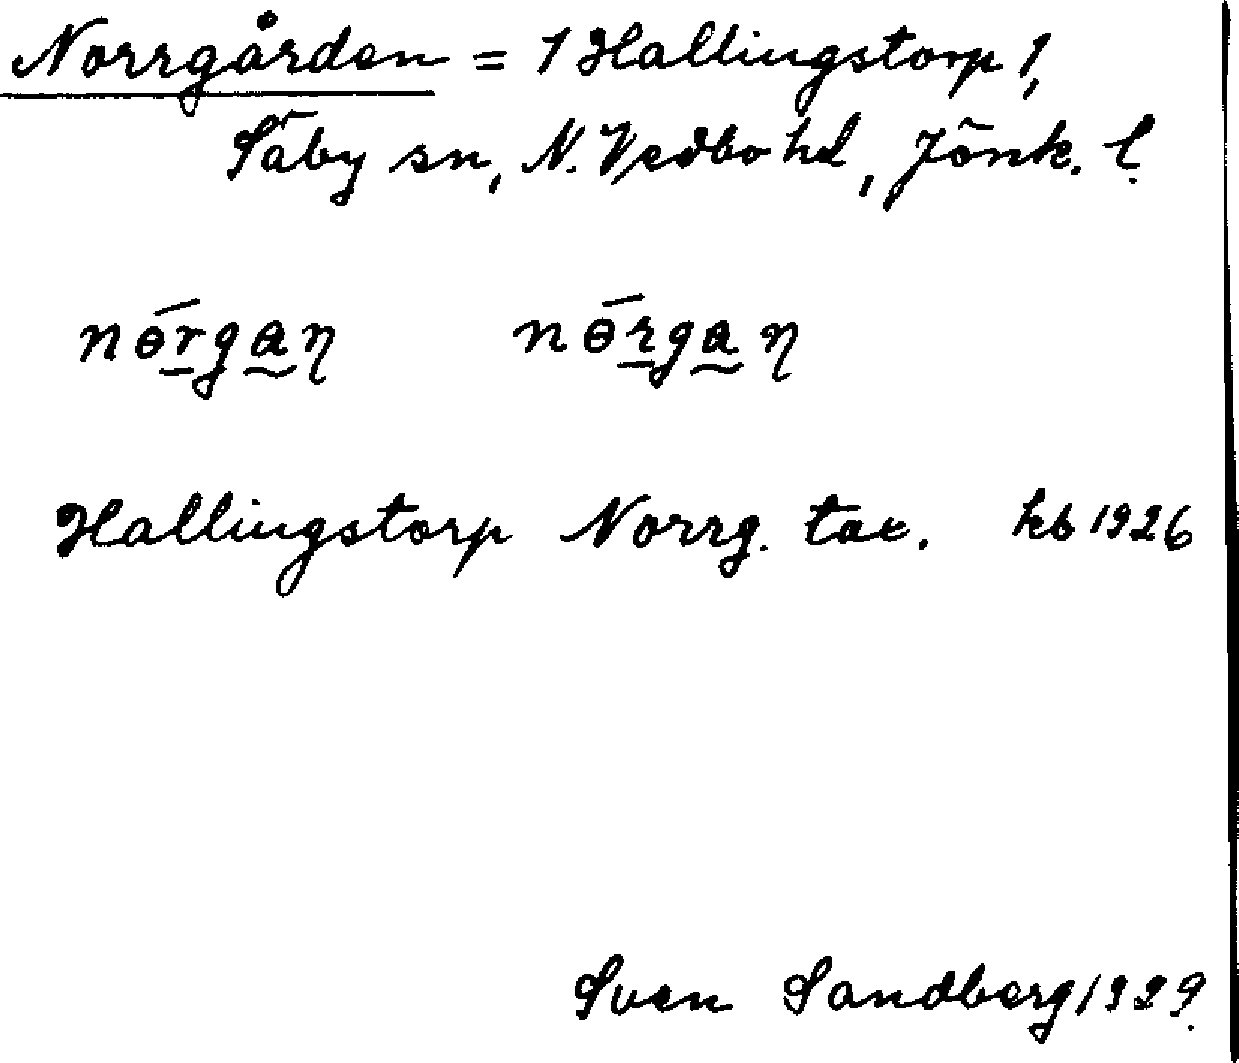 Norrgården = 1 Hallingstorp 1,
Säby sn, N. Vedbo hd, Jönk. l.
nɵ́rgaŋ nɵ́rgaŋ
Hallingstorp Norrg. tac. kb 1926
Sven Sandberg 1929.